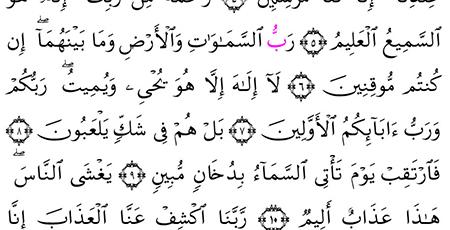 السَّمِيعُ الْعَلِيمُ ﴿٥﴾ رَبُّ السَّمَاوَاتِ وَالْأَرْضِ وَمَا بَيْنَهُمَا ۖ إِن
كُنتُم مُّوقِنِينَ ﴿٦﴾ لَآ إِلَٰهَ إِلَّا هُوَ يُحْيِۦ وَيُمِيتُ ۖ رَبُّكُمْ
وَرَبُّ ءَابَآئِكُمُ الْأَوَّلِينَ ﴿٧﴾ بَلْ هُمْ فِى شَكٍّ يَلْعَبُونَ ﴿٨﴾
فَارْتَقِبْ يَوْمَ تَأْتِى السَّمَآءُ بِدُخَانٍ مُّبِينٍ ﴿٩﴾ يَغْشَى النَّاسَ ۖ
هَٰذَا عَذَابٌ أَلِيمٌ ﴿١٠﴾ رَّبَّنَا اكْشِفْ عَنَّا الْعَذَابَ إِنَّا